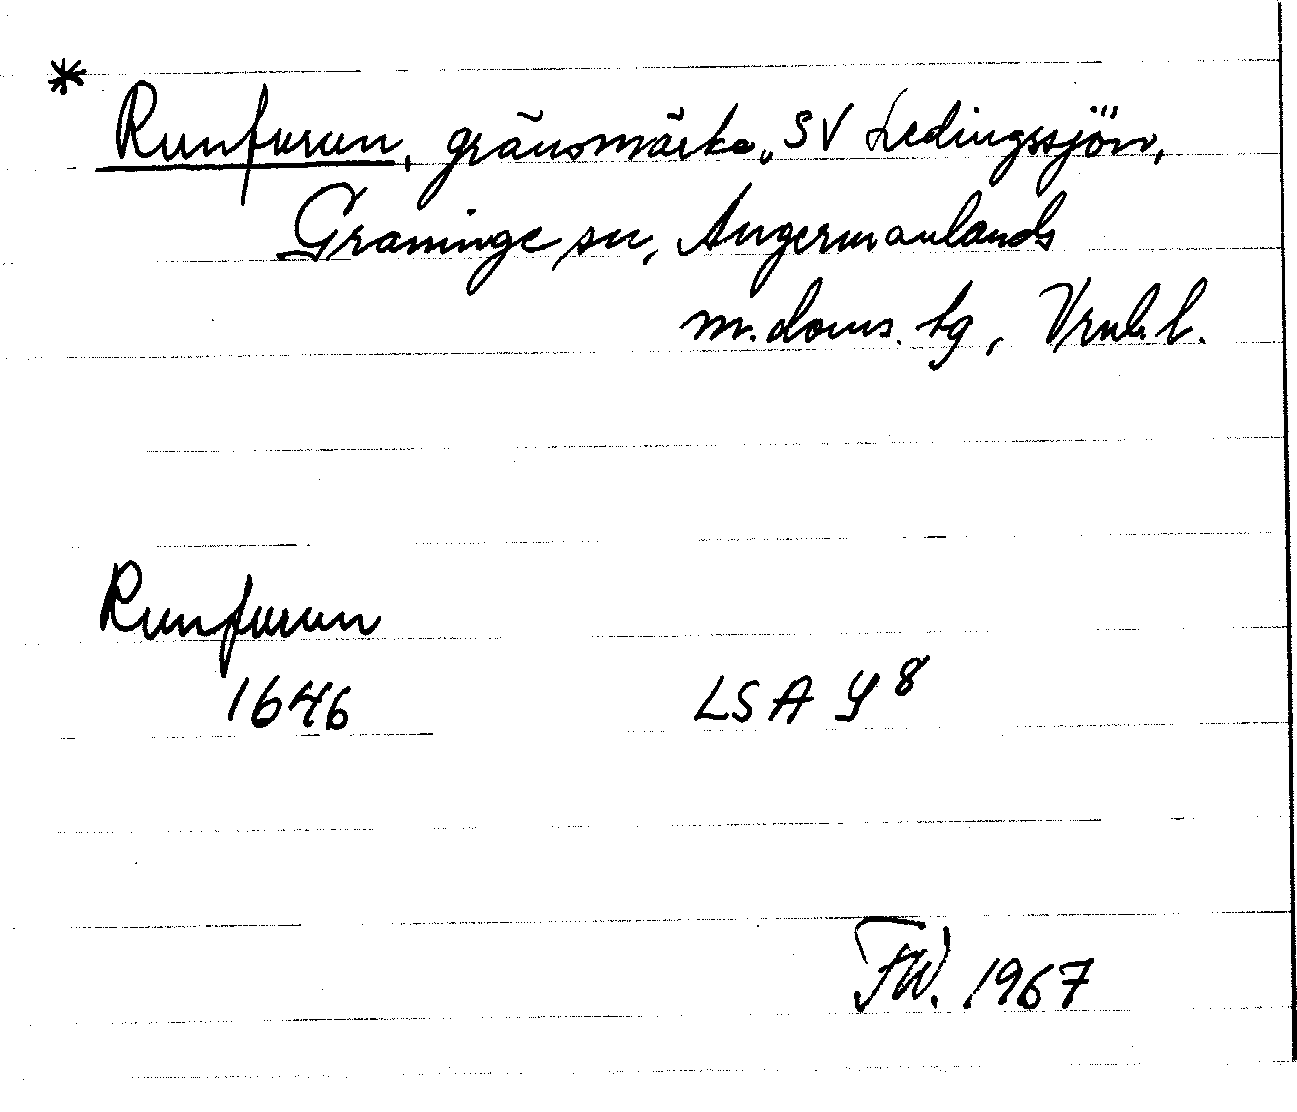 * Runfurun, gränsmärke, SV Ledingssjön,
Graninge sn, Ångermanlands
m. doms. tg, Vrnl. l.
Runfurun
1646 LSA Y 8
FW. 1967